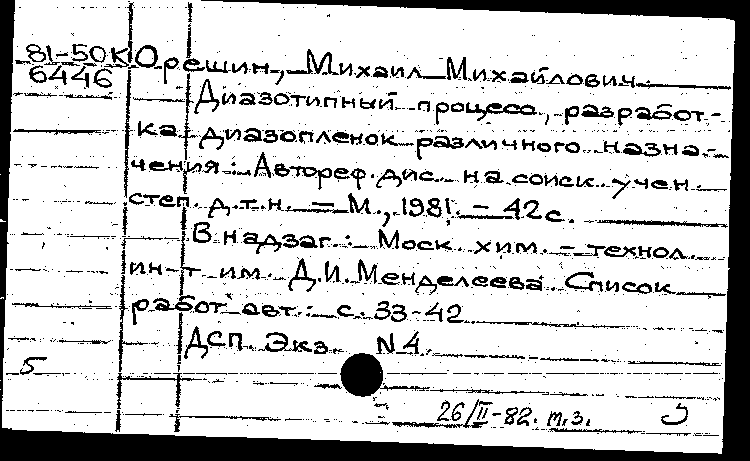 81-50К Орешин, Михаил Михайлович.
6446
Диазотипный процесс, разработ-
ка диазопленок различного назна-
чения: Автореф. дис. на соиск. учен.
степ. д.т.н. = М., 1981. - 42 с.
В надзаг.: Моск. хим. - технол.
ин-т им. Д.И. Менделеева. Список
работ авт.: с. 33-42
ДСП. Экз. N 4.
5
26/II-82. т.з.